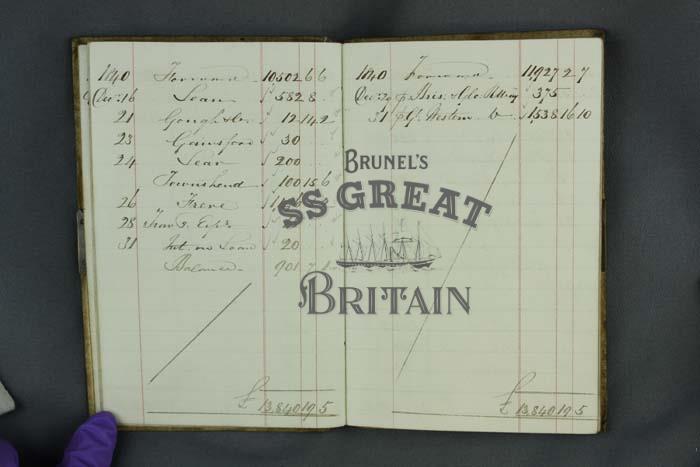 1840 Forward 10502 6 6
Dec: 16 Lean 582 8
21 Gough & Co 12 14 2
23 Gainsford 30
24 Lear 200
Townshend 100 15 6
26 Frere
28 Trav g Exps
31 Int. on Loan 20
Balance 901
£ 13,840 19 5
1840 Forward 11,927 2 7
Dec: 375
31 Gt Western Do 1,538 16 10
£ 13,840 19 5
BRUNEL'S
SS GREAT
BRITAIN